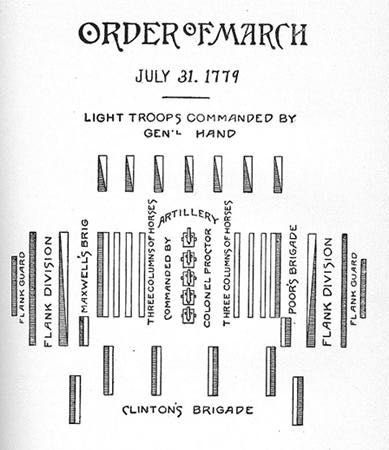 ORDER OF MARCH
JULY 31. 1779
LIGHT TROOPS COMMANDED BY
GEN'L HAND
ARTILLERY
FLANK GUARD
FLANK DIVISION
MAXWELL'S BRIG
THREE COLUMNS OF HORSES
COMMANDED BY
COLONEL PROCTOR
THREE COLUMNS OF HORSES
POOR'S BRIGADE
FLANK DIVISION
FLANK GUARD
CLINTON'S BRIGADE